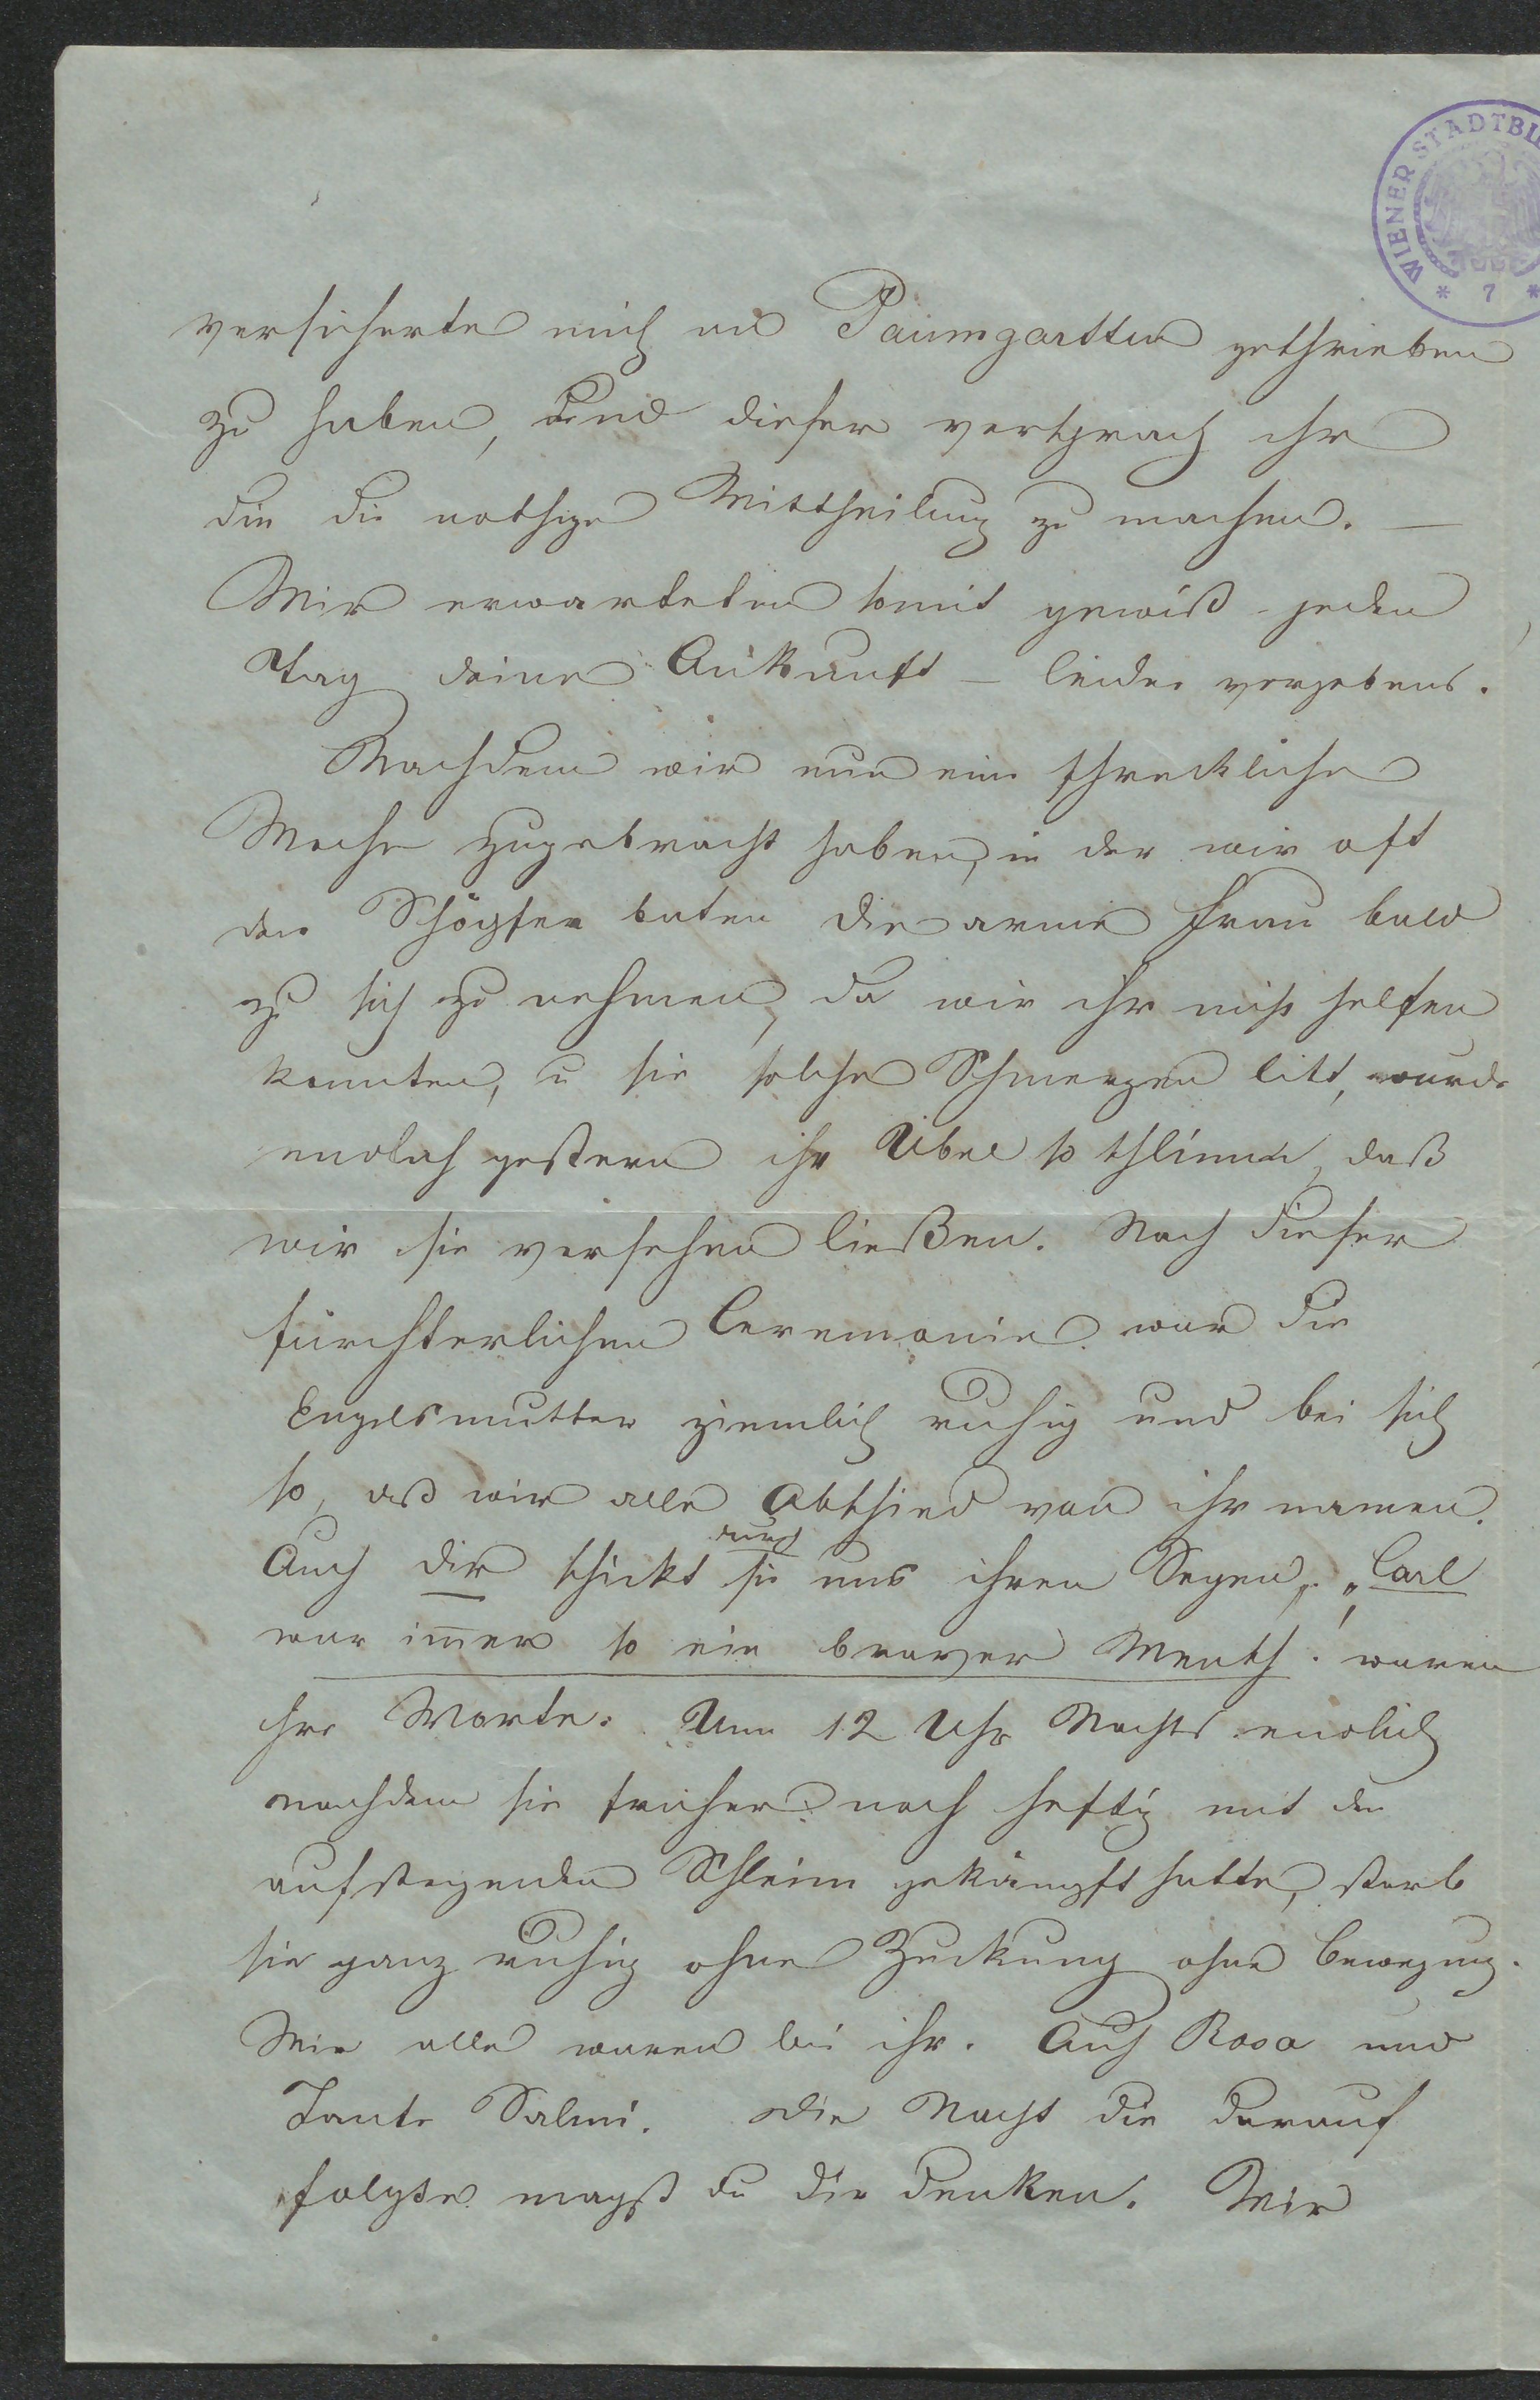 WIENER STADTBI
* 7 *
versicherte mich an Paumgartten geschrieben
zu haben, und dieser versprach ihr
dir die nothige Mittheilung zu machen. —
Wir erwarteten somit gewiß jeden
Tag deine Ankunft — leider vergebens.
Nachdem wir nun eine schreckliche
Woche zugebracht haben, in der wir oft
den Schöpfer baten die arme Frau bald
zu sich zu nehmen, da wir ihr nicht helfen
konnten, u sie solche Schmerzen litt, wurde
endlich gestern ihr Übel so schlimm, daß
wir sie versehen ließen. Nach dieser
fürchterlichen Ceremonie war die
Engelsmutter ziemlich ruhig und bei sich
so, daß wir alle Abschied von ihr namen.
Auch dir schickt sie durch uns ihren Segen. „Carl
war im̅er so ein braver Mensch! waren
ihre Worte. Um 12 Uhr Nachts endlich
nachdem sie früher noch heftig mit den
aufsteigenden Schleim gekämpft hatte, starb
sie ganz ruhig ohne Zuckung ohne Bewegung.
Wir alle waren bei ihr. Auch Rosa und
Tante Salmi. Die Nacht die darauf
folgte magst du dir denken. Wir